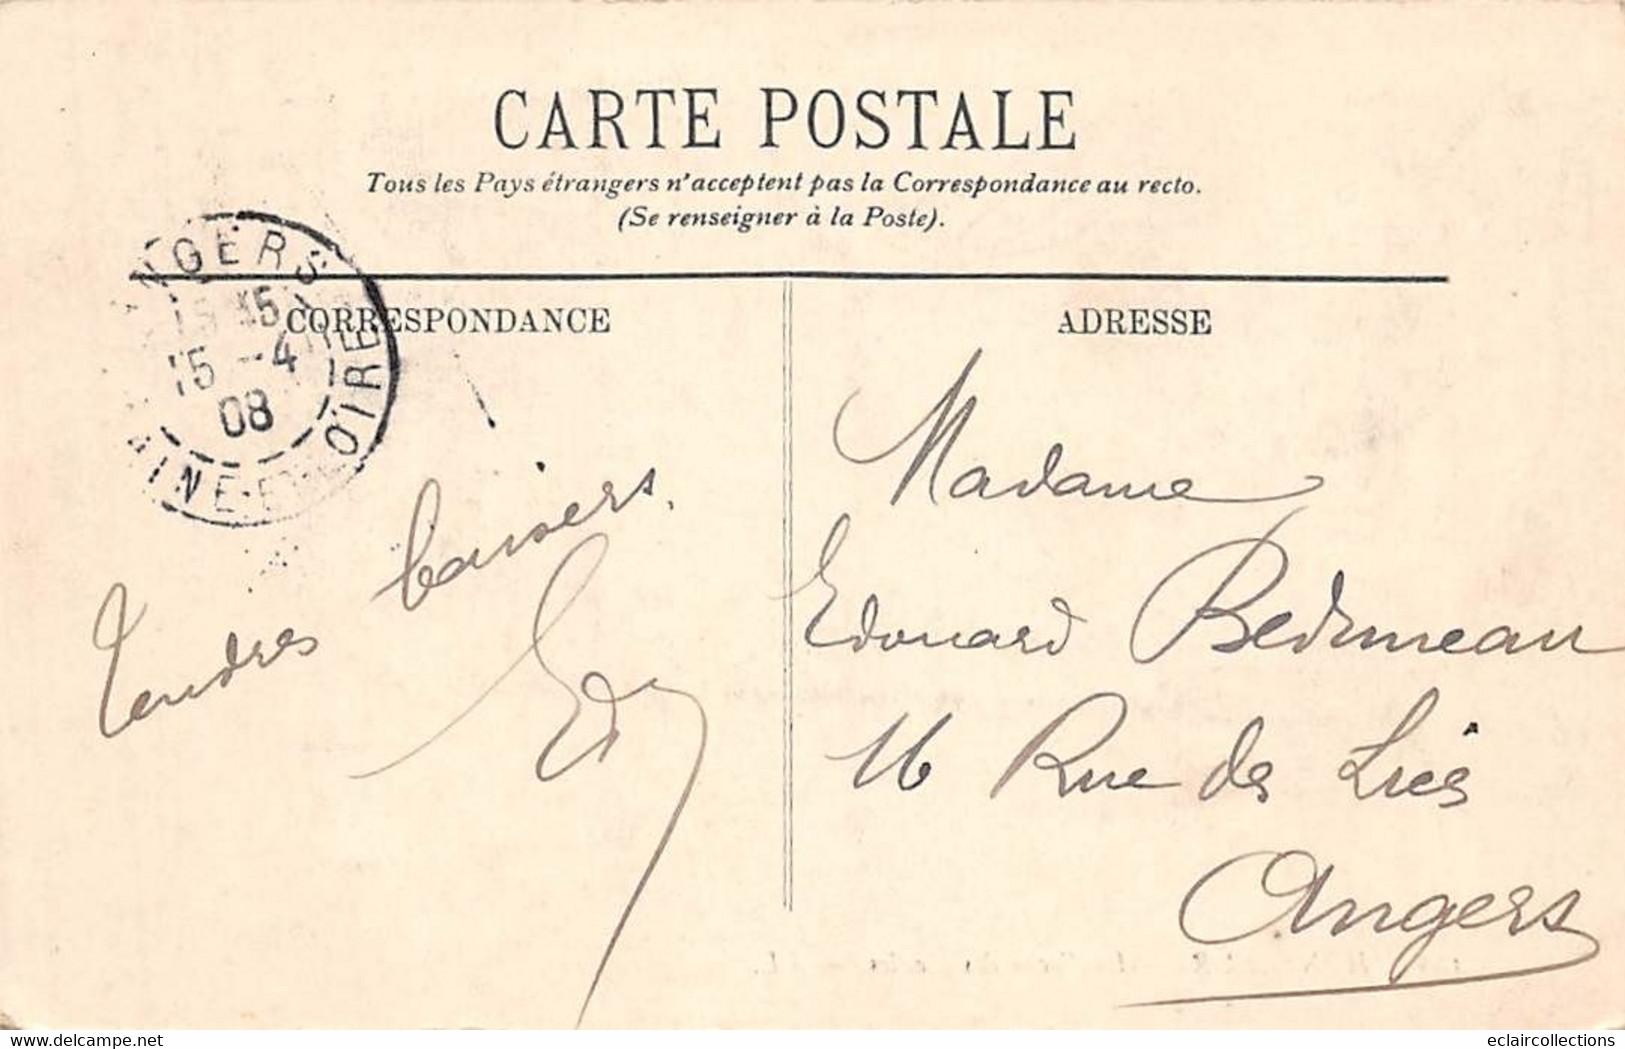 CARTE POSTALE
Tous les Pays étrangers n'acceptent pas la Correspondance au recto.
(Se renseigner à la Poste).
ANGERS
15 -4
08
MAINE-ET-LOIRE
CORRESPONDANCE
ADRESSE
Tendres baisers.
Ed
Madame
Edouard Bedruneau
16 Rue des Liés
Angers
delcampe.net
eclaircollections